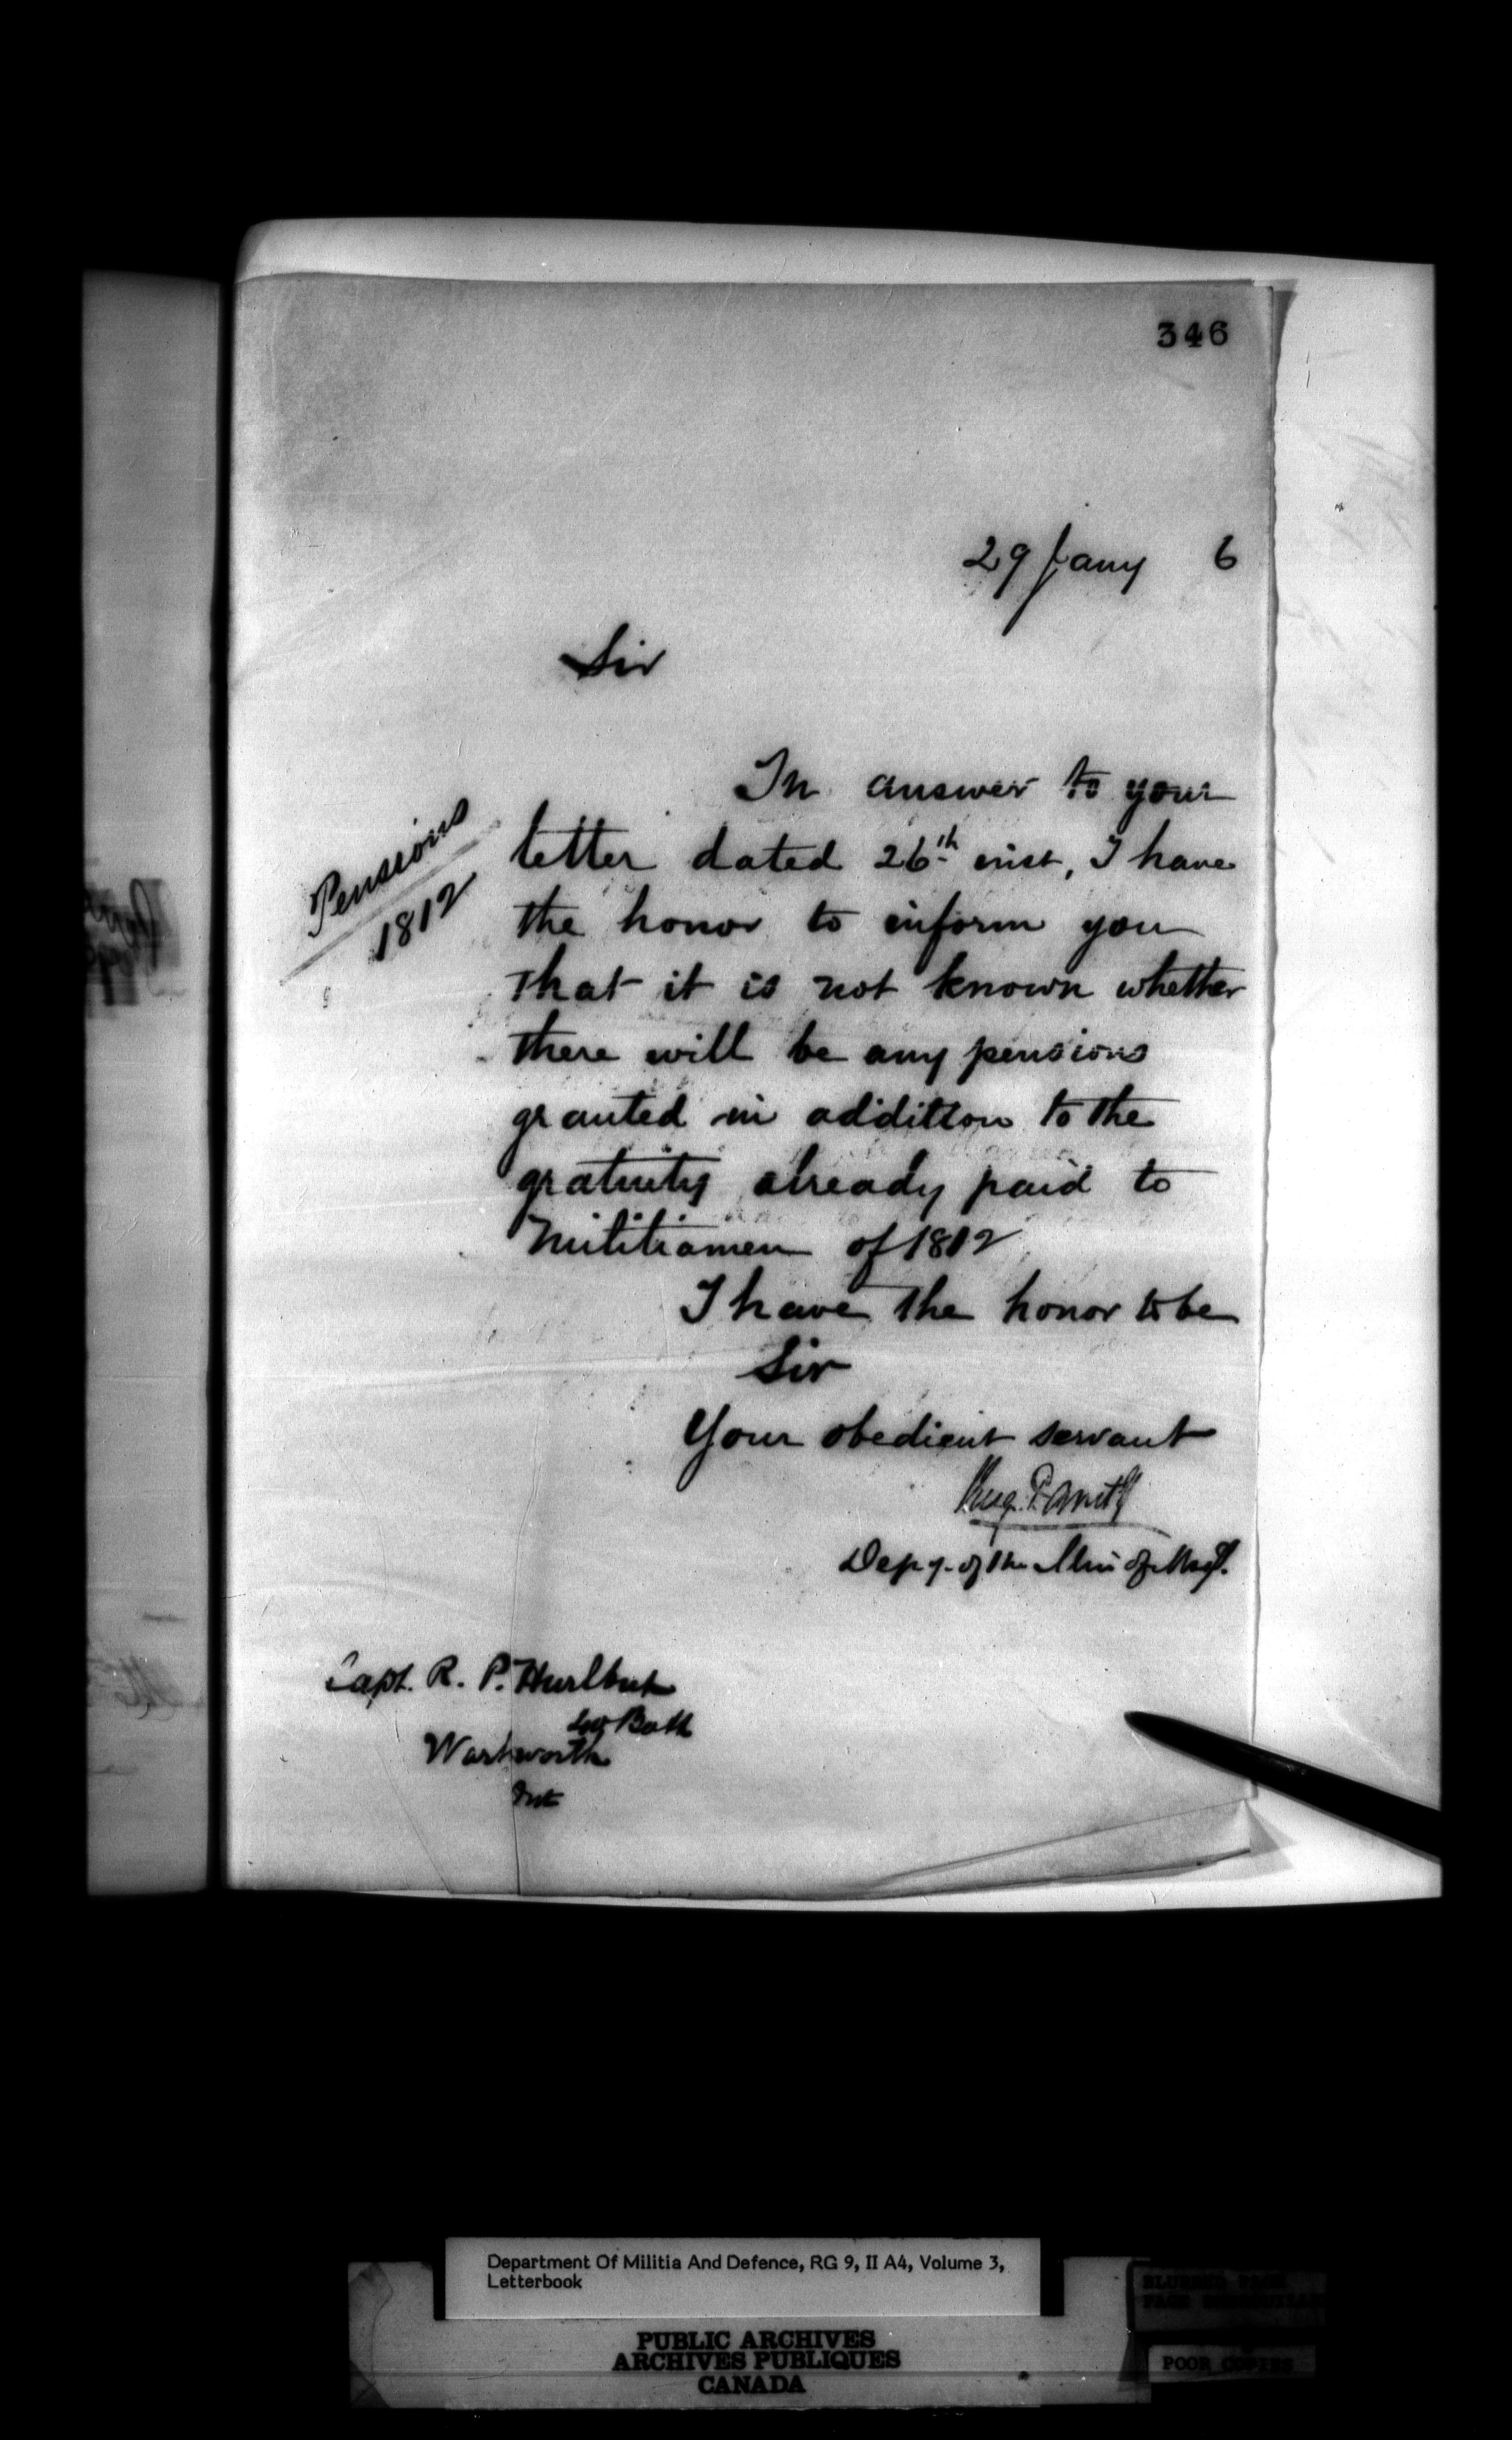 346
29 Jany 6
Sir
In answer to your
letter dated 26th inst, I have
the honor to inform you
that it is not known whether
there will be any pensions
granted in addition to the
gratuity already paid to
Militiamen of 1812
I have the honor to be
Sir
Your obedient servant
Eug. Panet
Depy. of the Min of M&D.
Pensions
1812
Capt. R. P. Hurlbut
40 Batt
Warkworth
Ont
Department Of Militia And Defence, RG 9, II A4, Volume 3,
Letterbook
PUBLIC ARCHIVES
ARCHIVES PUBLIQUES
CANADA
BLURRED PAGE
PAGE
POOR COPIES